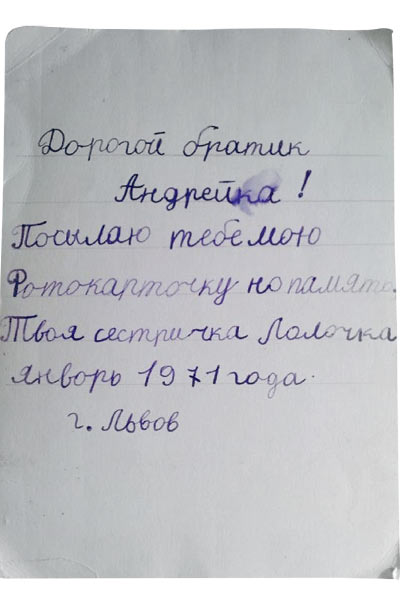 Дорогой братик
Андрейка!
Посылаю тебе мою
Фотокарточку но память.
Твоя сестричка Лолочка
январь 1971 года.
г. Львов